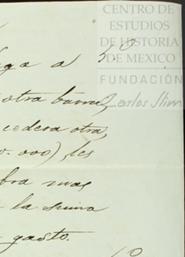 CENTRO DE
ESTUDIOS
DE HISTORIA
DE MEXICO
FUNDACIÓN
Carlos Slim
ga a S. E.
otra
cedera otra
0.000) les
bra mas
la suma
gasto.